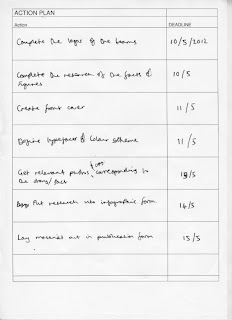 ACTION PLAN
Action
DEADLINE
Complete the logos of the teams
10/5/2012
Complete the research of the facts of
figures
10/5
Create front cover
11/5
Define typefaces of colour scheme
11/5
Get relevant photos corresponding to
the story/fact
13/5
Put research into infographic form
14/5
Lay material out in publication form
15/5